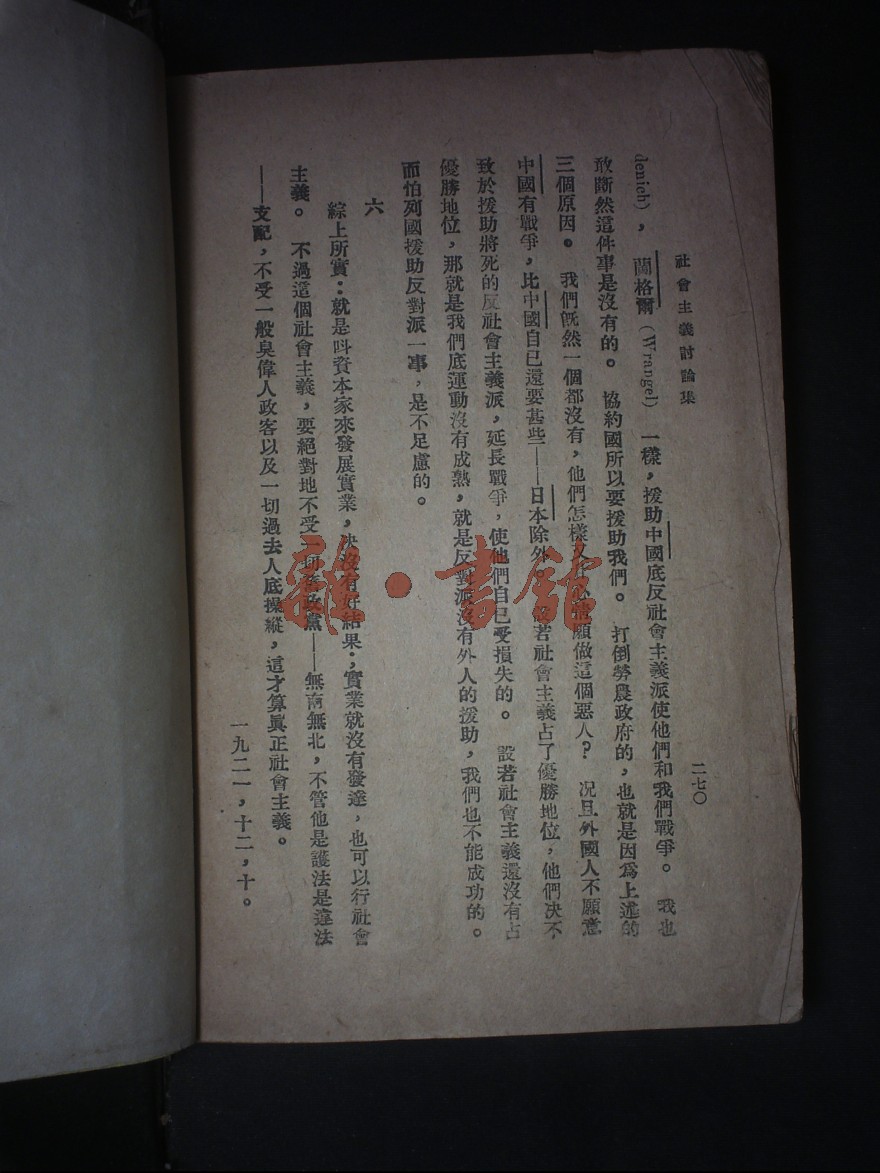 社會主義討論集
二七〇
denich），蘭格爾（Wrangel）一樣，援助中國底反社會主義派使他們和我們戰爭。我也
敢斷然這件事是沒有的。協約國所以要援助我們。打倒勞農政府的，也就是因爲上述的
三個原因。我們旣然一個都沒有，他們怎樣又 願做這個惡人？况且外國人不願意
中國有戰爭，比中國自已還要甚些——日本除外。設若社會主義占了優勝地位，他們决不
致於援助將死的反社會主義派，延長戰爭，使他們自已受損失的。設若社會主義還沒有占
優勝地位，那就是我們底運動沒有成熟，就是反對派沒有外人的援助，我們也不能成功的。
而怕列國援助反對派一事，是不足慮的。
六
綜上所實：就是呌資本家來發展實業，决沒有好結果；實業就沒有發達，也可以行社會
主義。不過這個社會主義，要絕對地不受一切舊政黨——無南無北，不管他是護法是違法
——支配，不受一般臭偉人政客以及一切過去人底操縱，這才算眞正社會主義。
一九二一，十二，十。
雜·書館